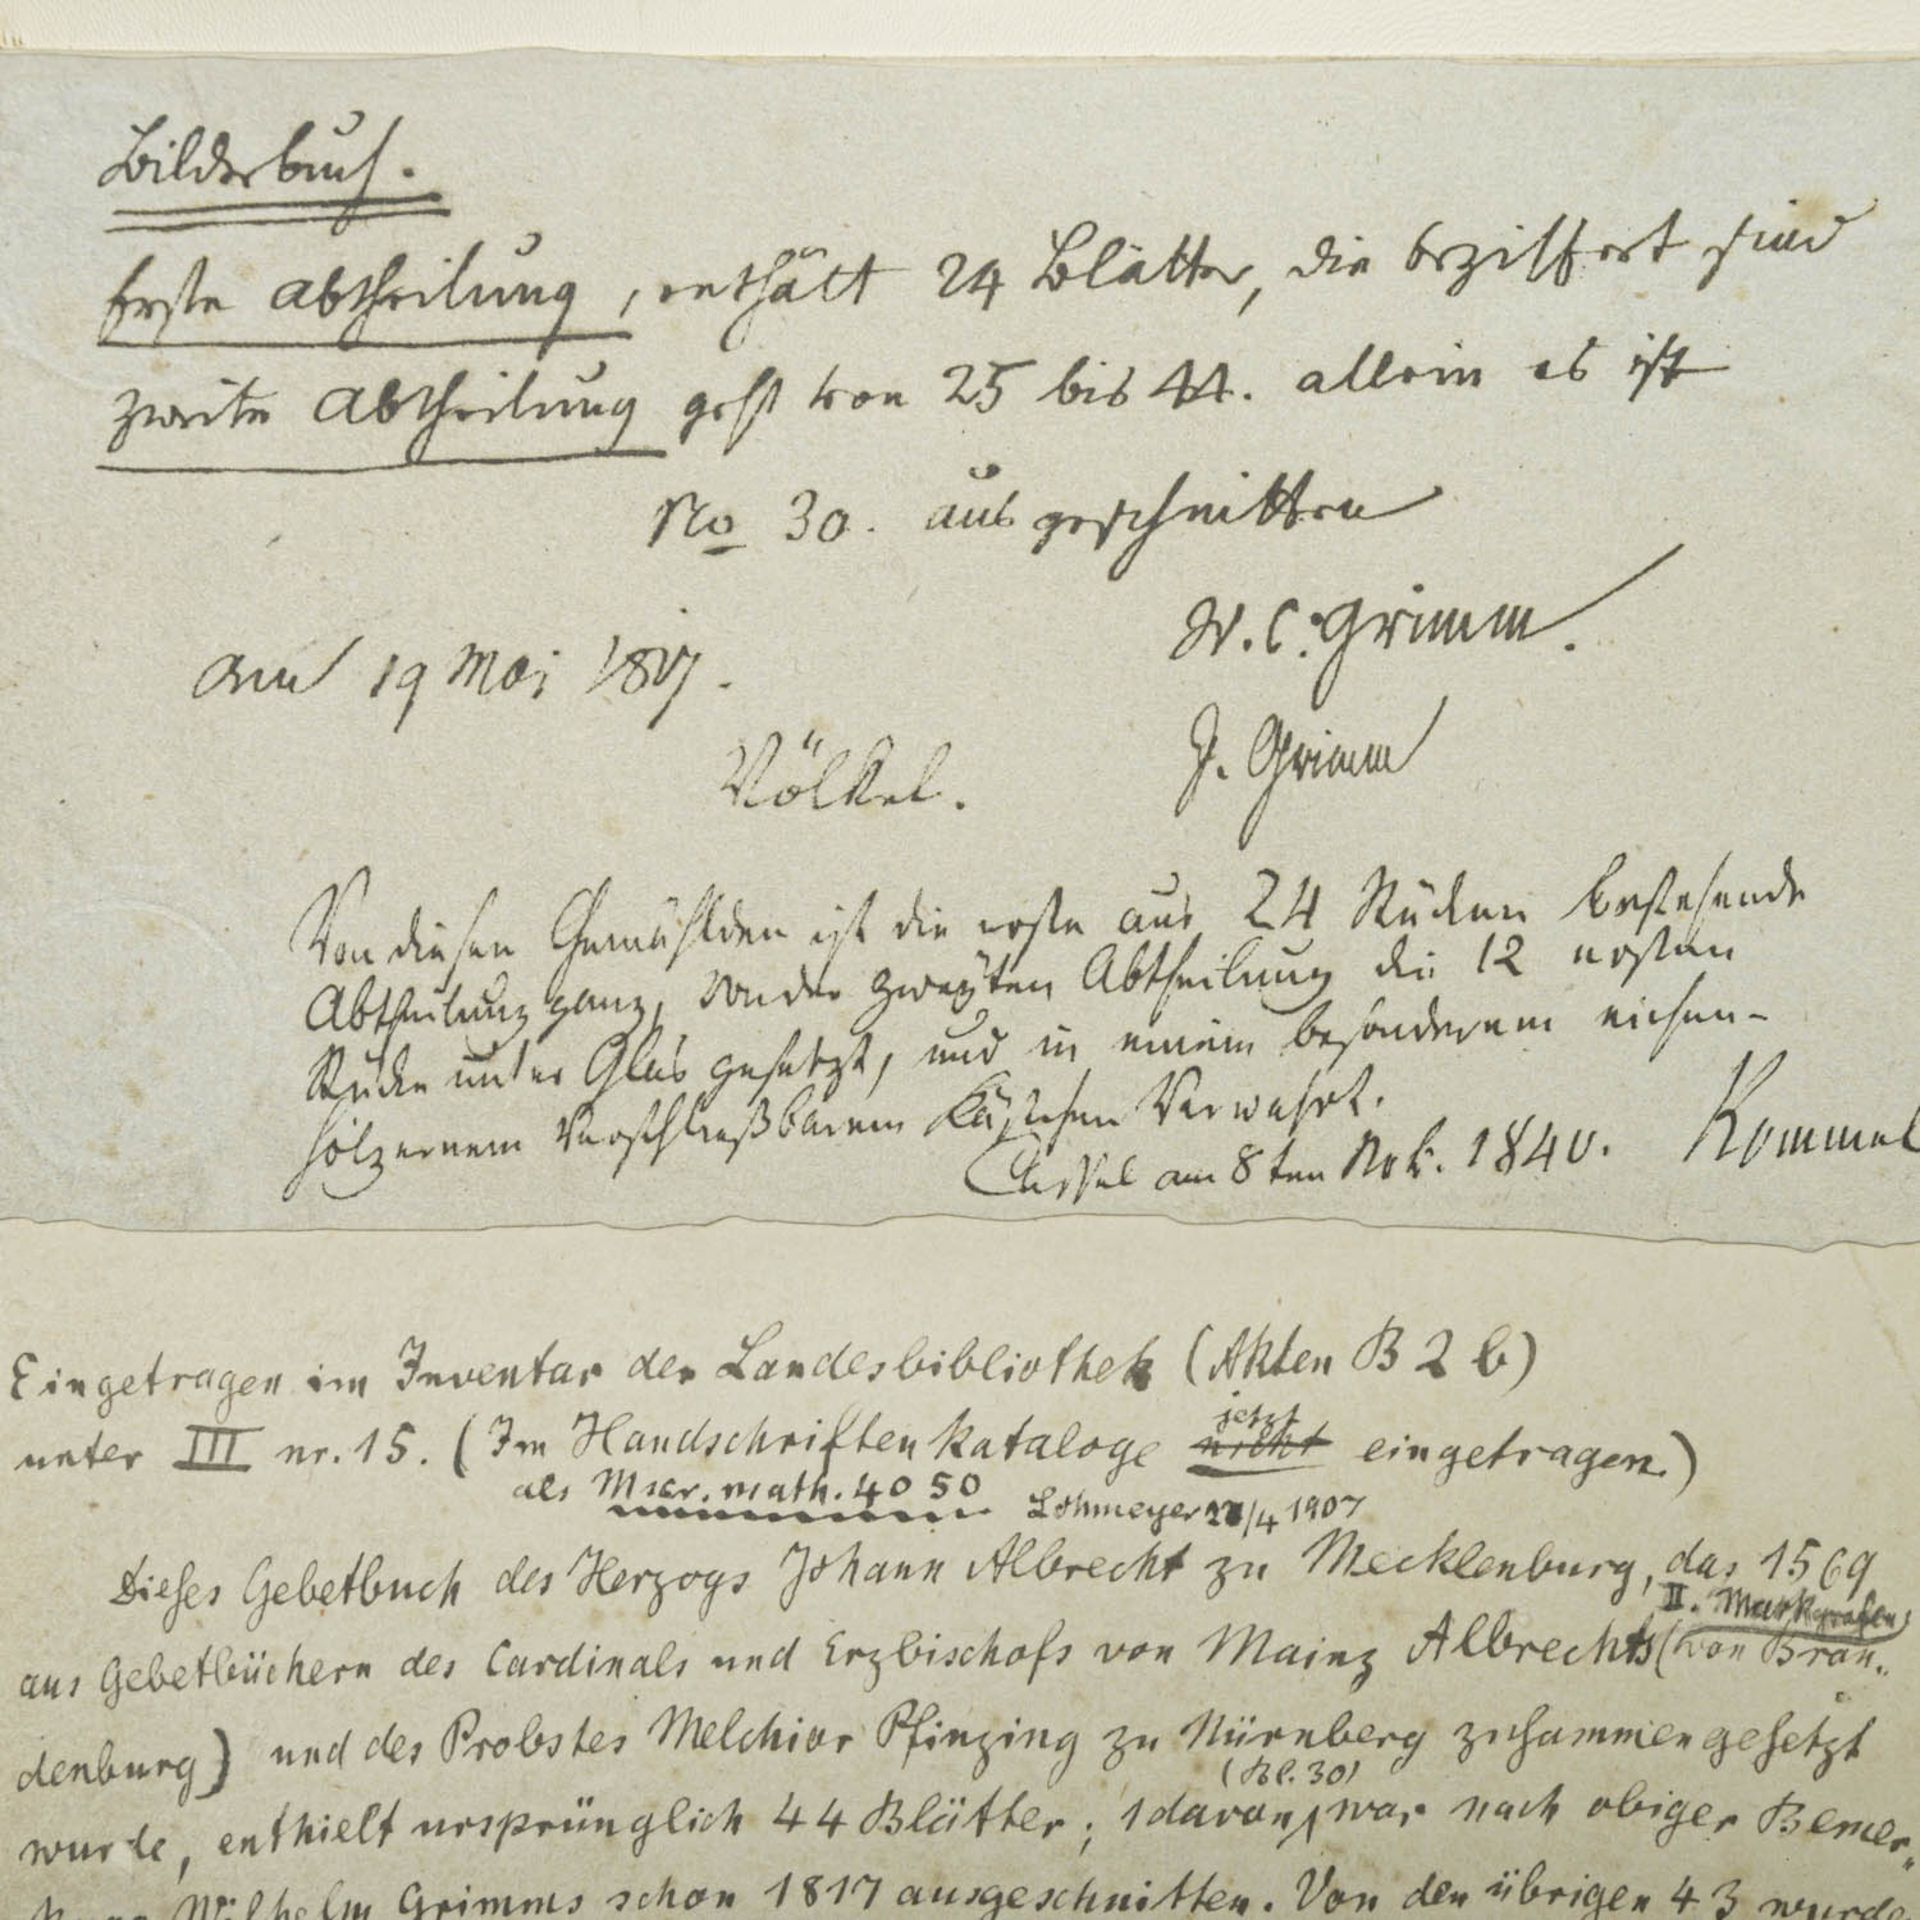 Bilderbuch.
Erste Abtheilung, enthält 24 Blätter, die beziffert sind
zweite Abtheilung geht von 25 bis 44. allein es ist
No 30. ausgeschnitten
W. C. Grimm.
am 19 Mai 1817.
J. Grimm
Völkel.
Von diesen Gemählden ist die erste aus 24 Stücken bestehende
Abtheilung ganz, von der zweyten Abtheilung die 12 ersten
Stücke unter Glas gesetzt, und in einem besonderem eichen-
hölzernem verschließbarem Kästchen verwahrt.
Cassel am 8ten Nov. 1840. Rommel
Eingetragen im Inventar der Landesbibliothek (Akten B 2 b)
jetzt
unter III nr. 15. (Im Handschriftenkataloge nicht eingetragen.)
als Mscr. math. 4o 50 Lohmeyer /4 1907
Dieses Gebetbuch des Herzogs Johann Albrecht zu Mecklenburg, das 1569
II. Markgrafen
aus Gebetbüchern des Cardinals und Erzbischofs von Mainz Albrechts (von Bran-
denburg) und des Probstes Melchior Pfinzing zu Nürnberg zusammengesetzt
(Bl. 30)
wurde, enthielt ursprünglich 44 Blätter; 1 davon war nach obiger Bemer-
Wilhelm Grimms schon 1817 ausgeschnitten. Von den übrigen 43 wurde